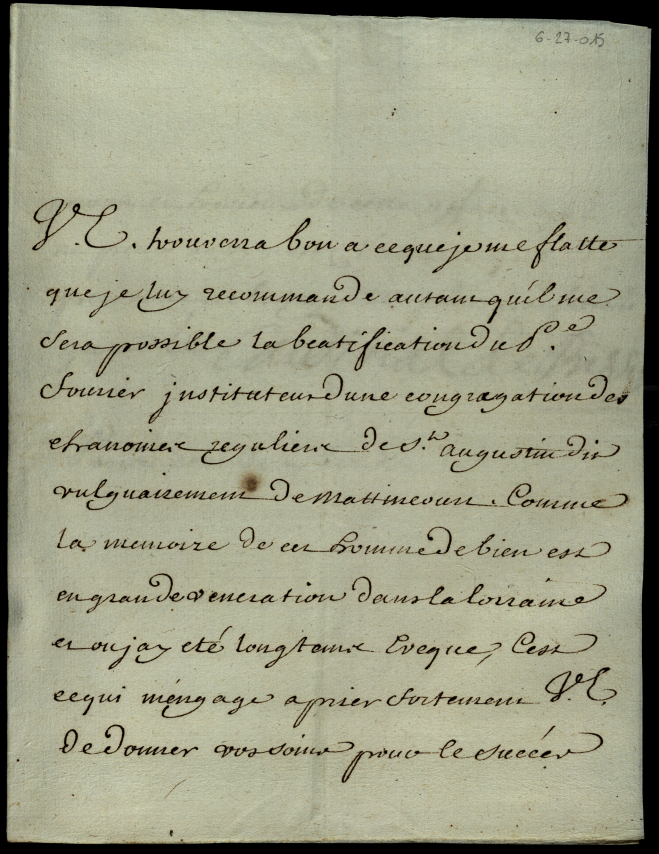 6-27-015
V.E. trouvera bon a ceque je me flatte
que je luy recommande autant quíl me
sera possible la beatification du P.e
fourier jnstituteur dune congragation des
chanoines reguliers de s.t augustin dit
vulguairement de Mattincourt. Comme
la memoire de cet homme de bien est
en grande veneration dans la lorraine
et ou jay eté longtems Eveque, C'est
cequi m'engage a prier fortement V.E.
de donner vos soins pour le succés